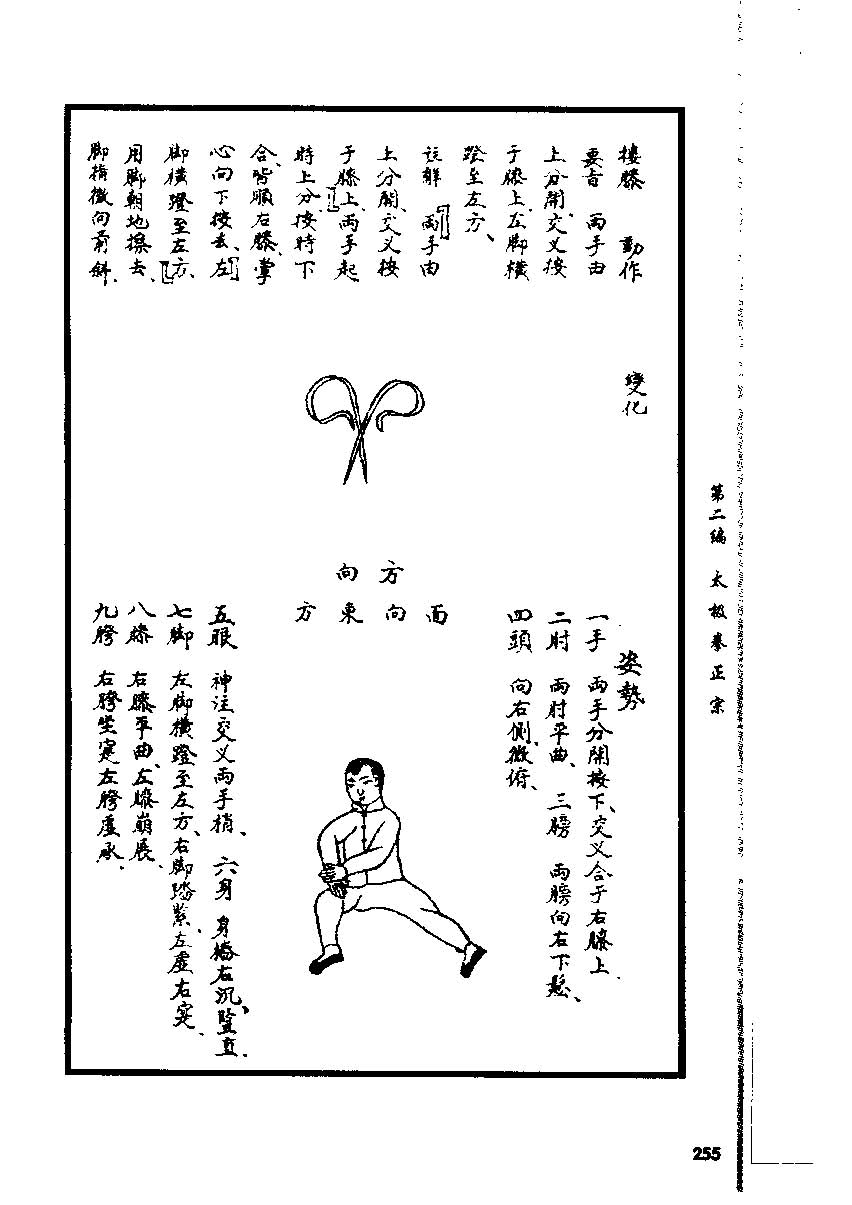 搂膝　動作
要旨　両手由
上分開、交义按
于膝上、左脚横
蹬至左方、
註解　両手由
上分開、交义按
于膝上、両手起
時上分、按時下
合、皆順右膝、掌
心向下按去、左
脚横蹬至左方、
用脚朝地擦去、
脚指微向前斜、
變化
方向
面向東方
姿勢
一手　両手分開按下、交义合于右膝上、
二肘　両肘平曲、三膀　両膀向右下鬆、
四頭　向右側微俯、
五眼　神注交义両手梢、六身　身樁右沉、豎直、
七脚　左脚横蹬至左方、右脚踏緊、左虚右実、
八膝　右膝平曲、左膝崩展、
九胯　右胯坐寔左胯虚承、
第二编　太极拳正宗
255